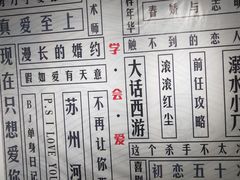 真爱至上
术师
春娇与志
漫长的婚约
触不到的恋人
假如爱有天意
学·会·爱
现在只想爱你
BJ单身日记
P.S I LOVE YOU
苏州河
不再让你
大话西游
滚滚红尘
前任攻略
溺水小刀
这个杀手不太冷
初恋五十